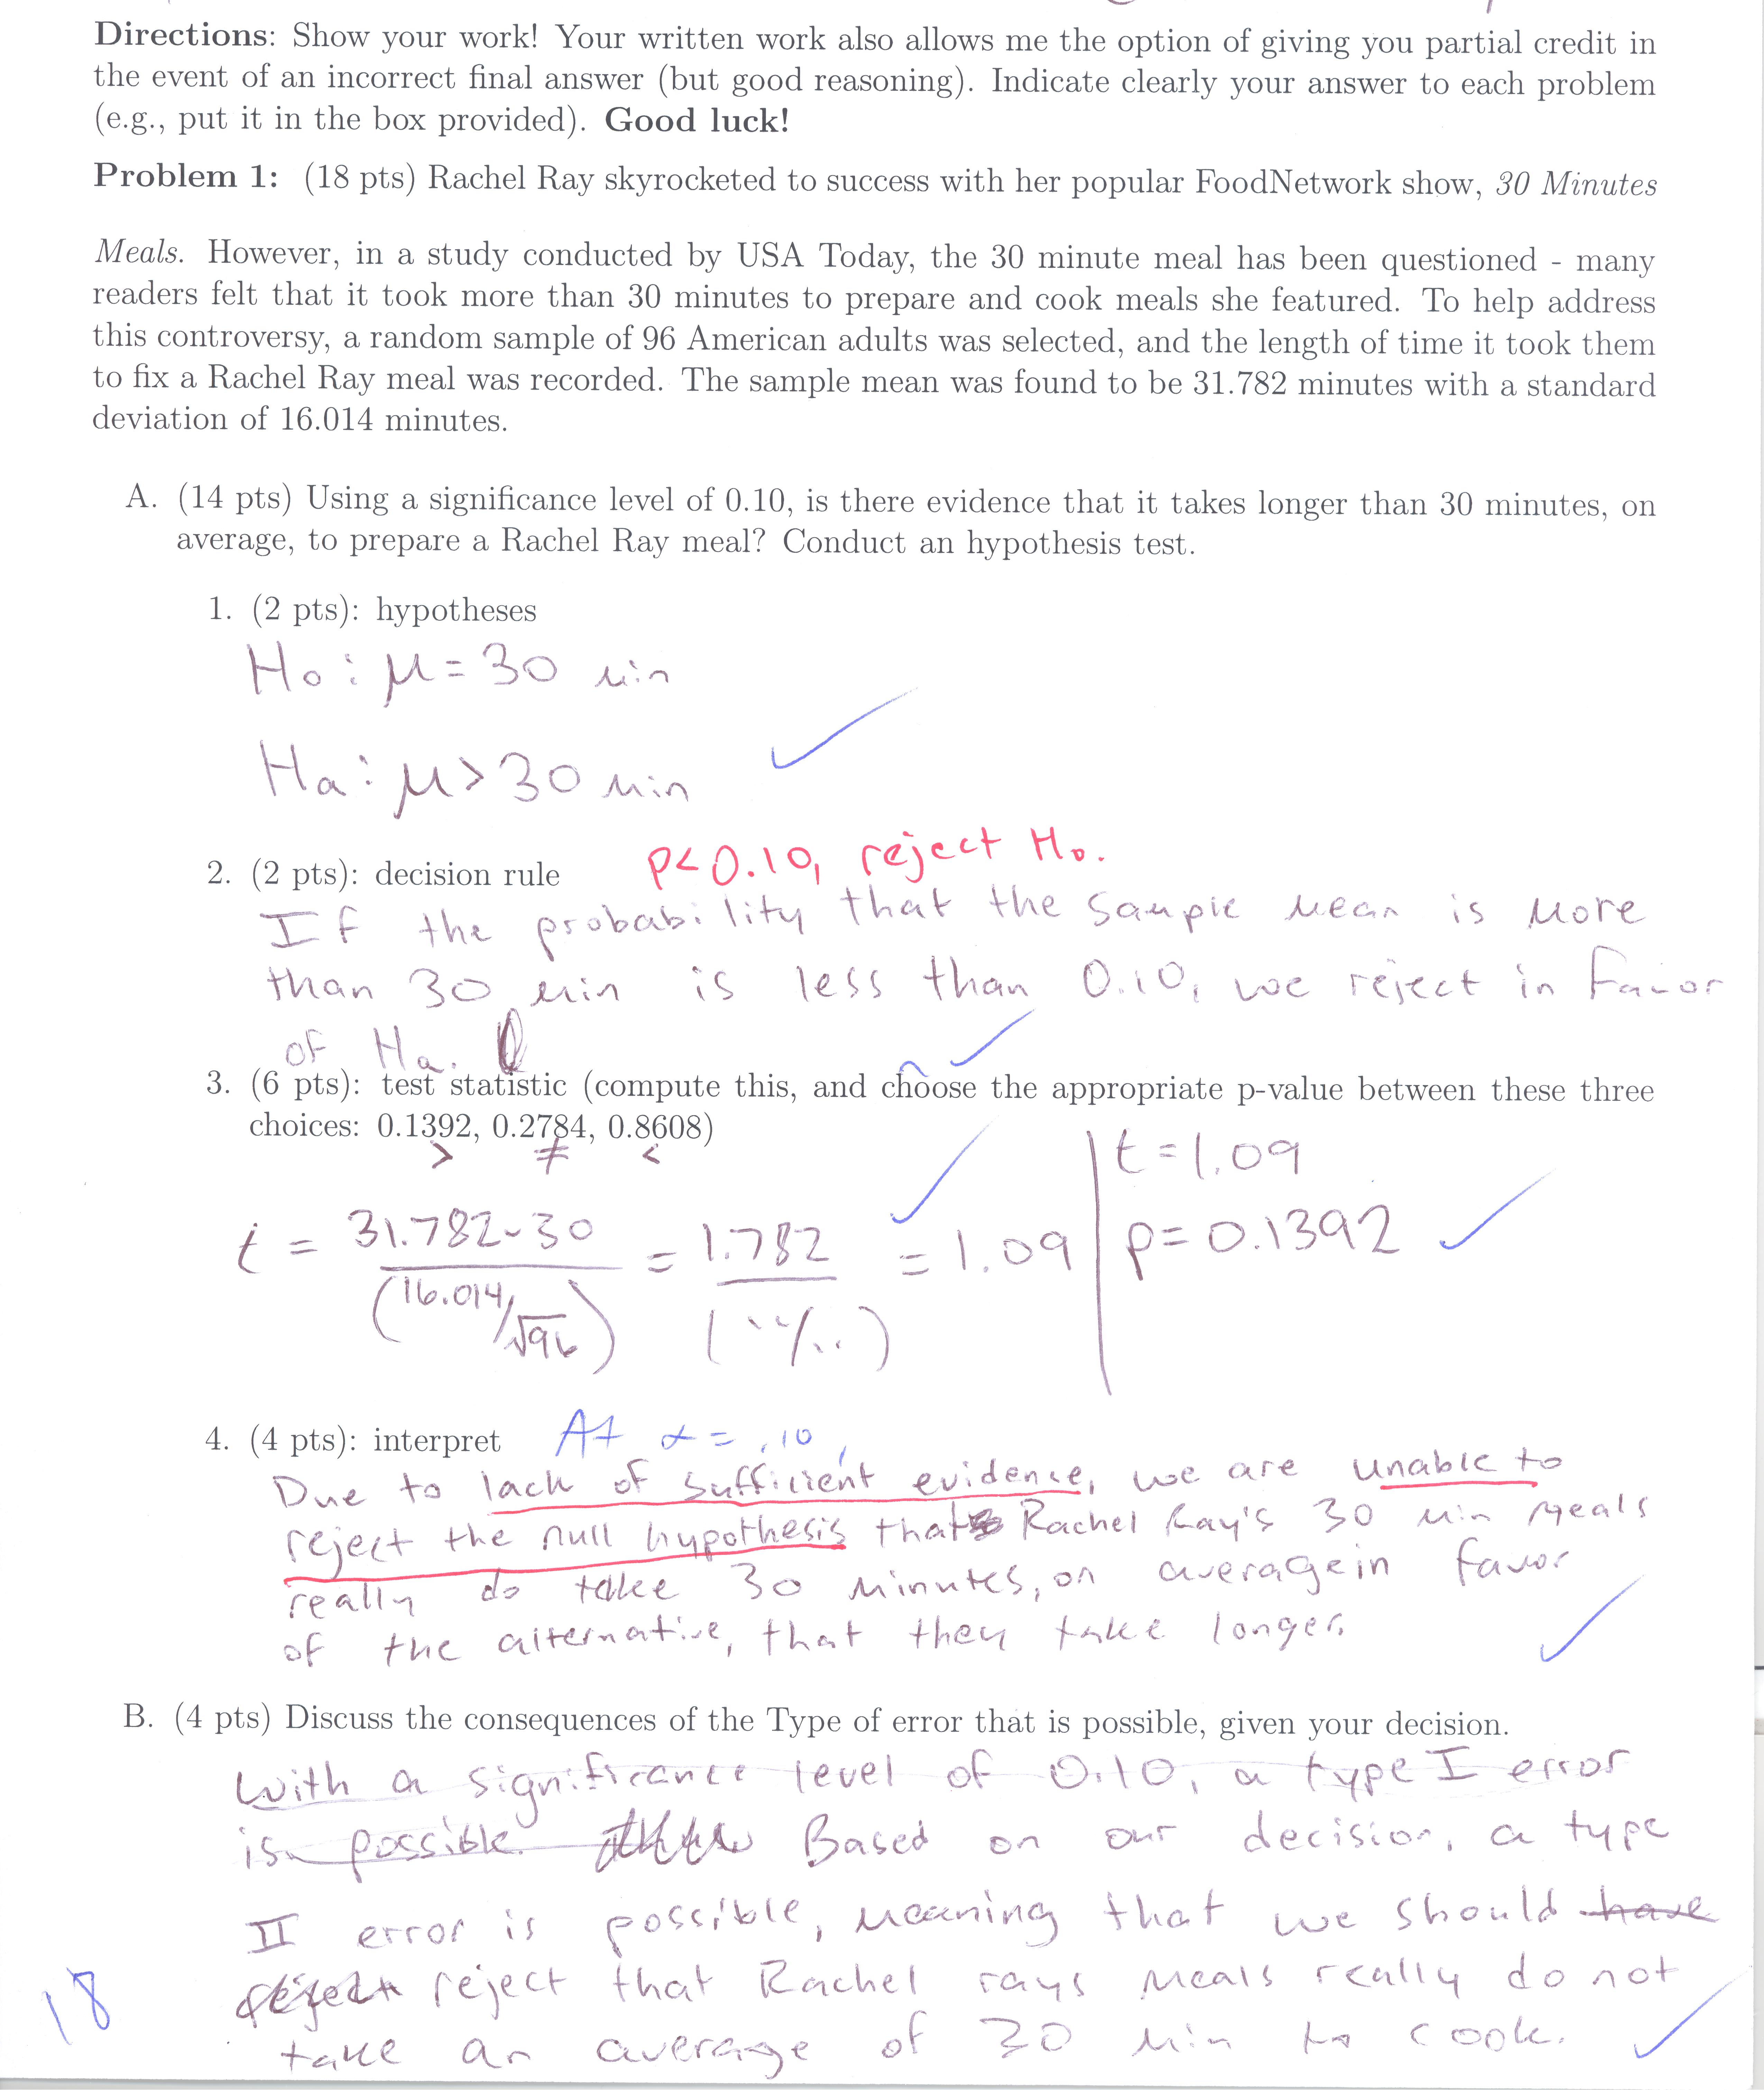 Directions: Show your work! Your written work also allows me the option of giving you partial credit in
the event of an incorrect final answer (but good reasoning). Indicate clearly your answer to each problem
(e.g., put it in the box provided). Good luck!
Problem 1: (18 pts) Rachel Ray skyrocketed to success with her popular FoodNetwork show, 30 Minutes
Meals. However, in a study conducted by USA Today, the 30 minute meal has been questioned - many
readers felt that it took more than 30 minutes to prepare and cook meals she featured. To help address
this controversy, a random sample of 96 American adults was selected, and the length of time it took them
to fix a Rachel Ray meal was recorded. The sample mean was found to be 31.782 minutes with a standard
deviation of 16.014 minutes.
A. (14 pts) Using a significance level of 0.10, is there evidence that it takes longer than 30 minutes, on
average, to prepare a Rachel Ray meal? Conduct an hypothesis test.
1. (2 pts): hypotheses
Ho: μ = 30 min
Ha: μ > 30 min
2. (2 pts): decision rule p<0.10, reject Ho.
If the probability that the sample mean is more
than 30 min is less than 0.10, we reject in favor
of Ha.
3. (6 pts): test statistic (compute this, and choose the appropriate p-value between these three
choices: 0.1392, 0.2784, 0.8608)
> ≠ <
t = 31.782-30 / (16.014/√96) = 1.782 / ( "/.. ) = 1.09 | t = 1.09
p = 0.1392
4. (4 pts): interpret At α = .10,
Due to lack of sufficient evidence, we are unable to
reject the null hypothesis that Rachel Ray's 30 min meals
really do take 30 minutes, on average in favor
of the alternative, that they take longer.
B. (4 pts) Discuss the consequences of the Type of error that is possible, given your decision.
With a significance level of 0.10, a type I error
is possible. Based on our decision, a type
II error is possible, meaning that we should have
reject that Rachel rays meals really do not
take an average of 30 min to cook.
18